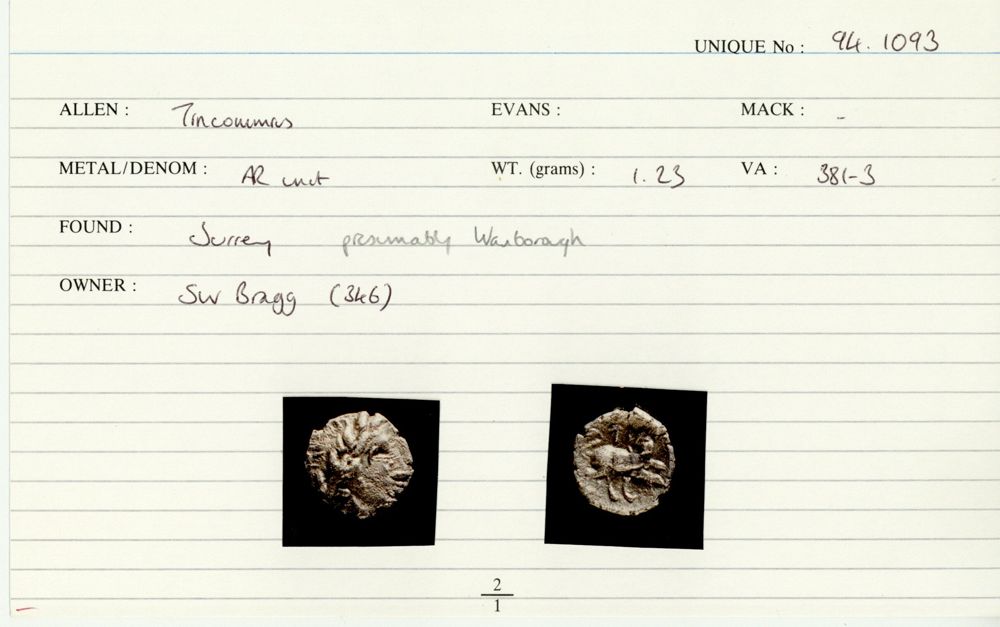 UNIQUE No : 94.1093
ALLEN : Tincommius EVANS : MACK : -
METAL/DENOM : AR unit WT. (grams) : 1.23 VA : 381-3
FOUND : Surrey presumably Wanborough
OWNER : SW Bragg (346)
2
1